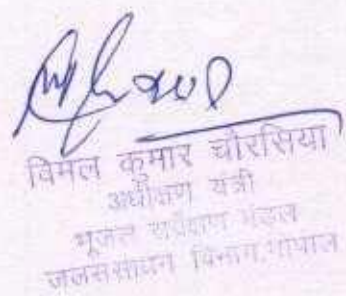 विमल कुमार चौरसिया
अधीक्षण यंत्री
भूजल सर्वेक्षण मंडल
जलसंसाधन विभाग, भोपाल